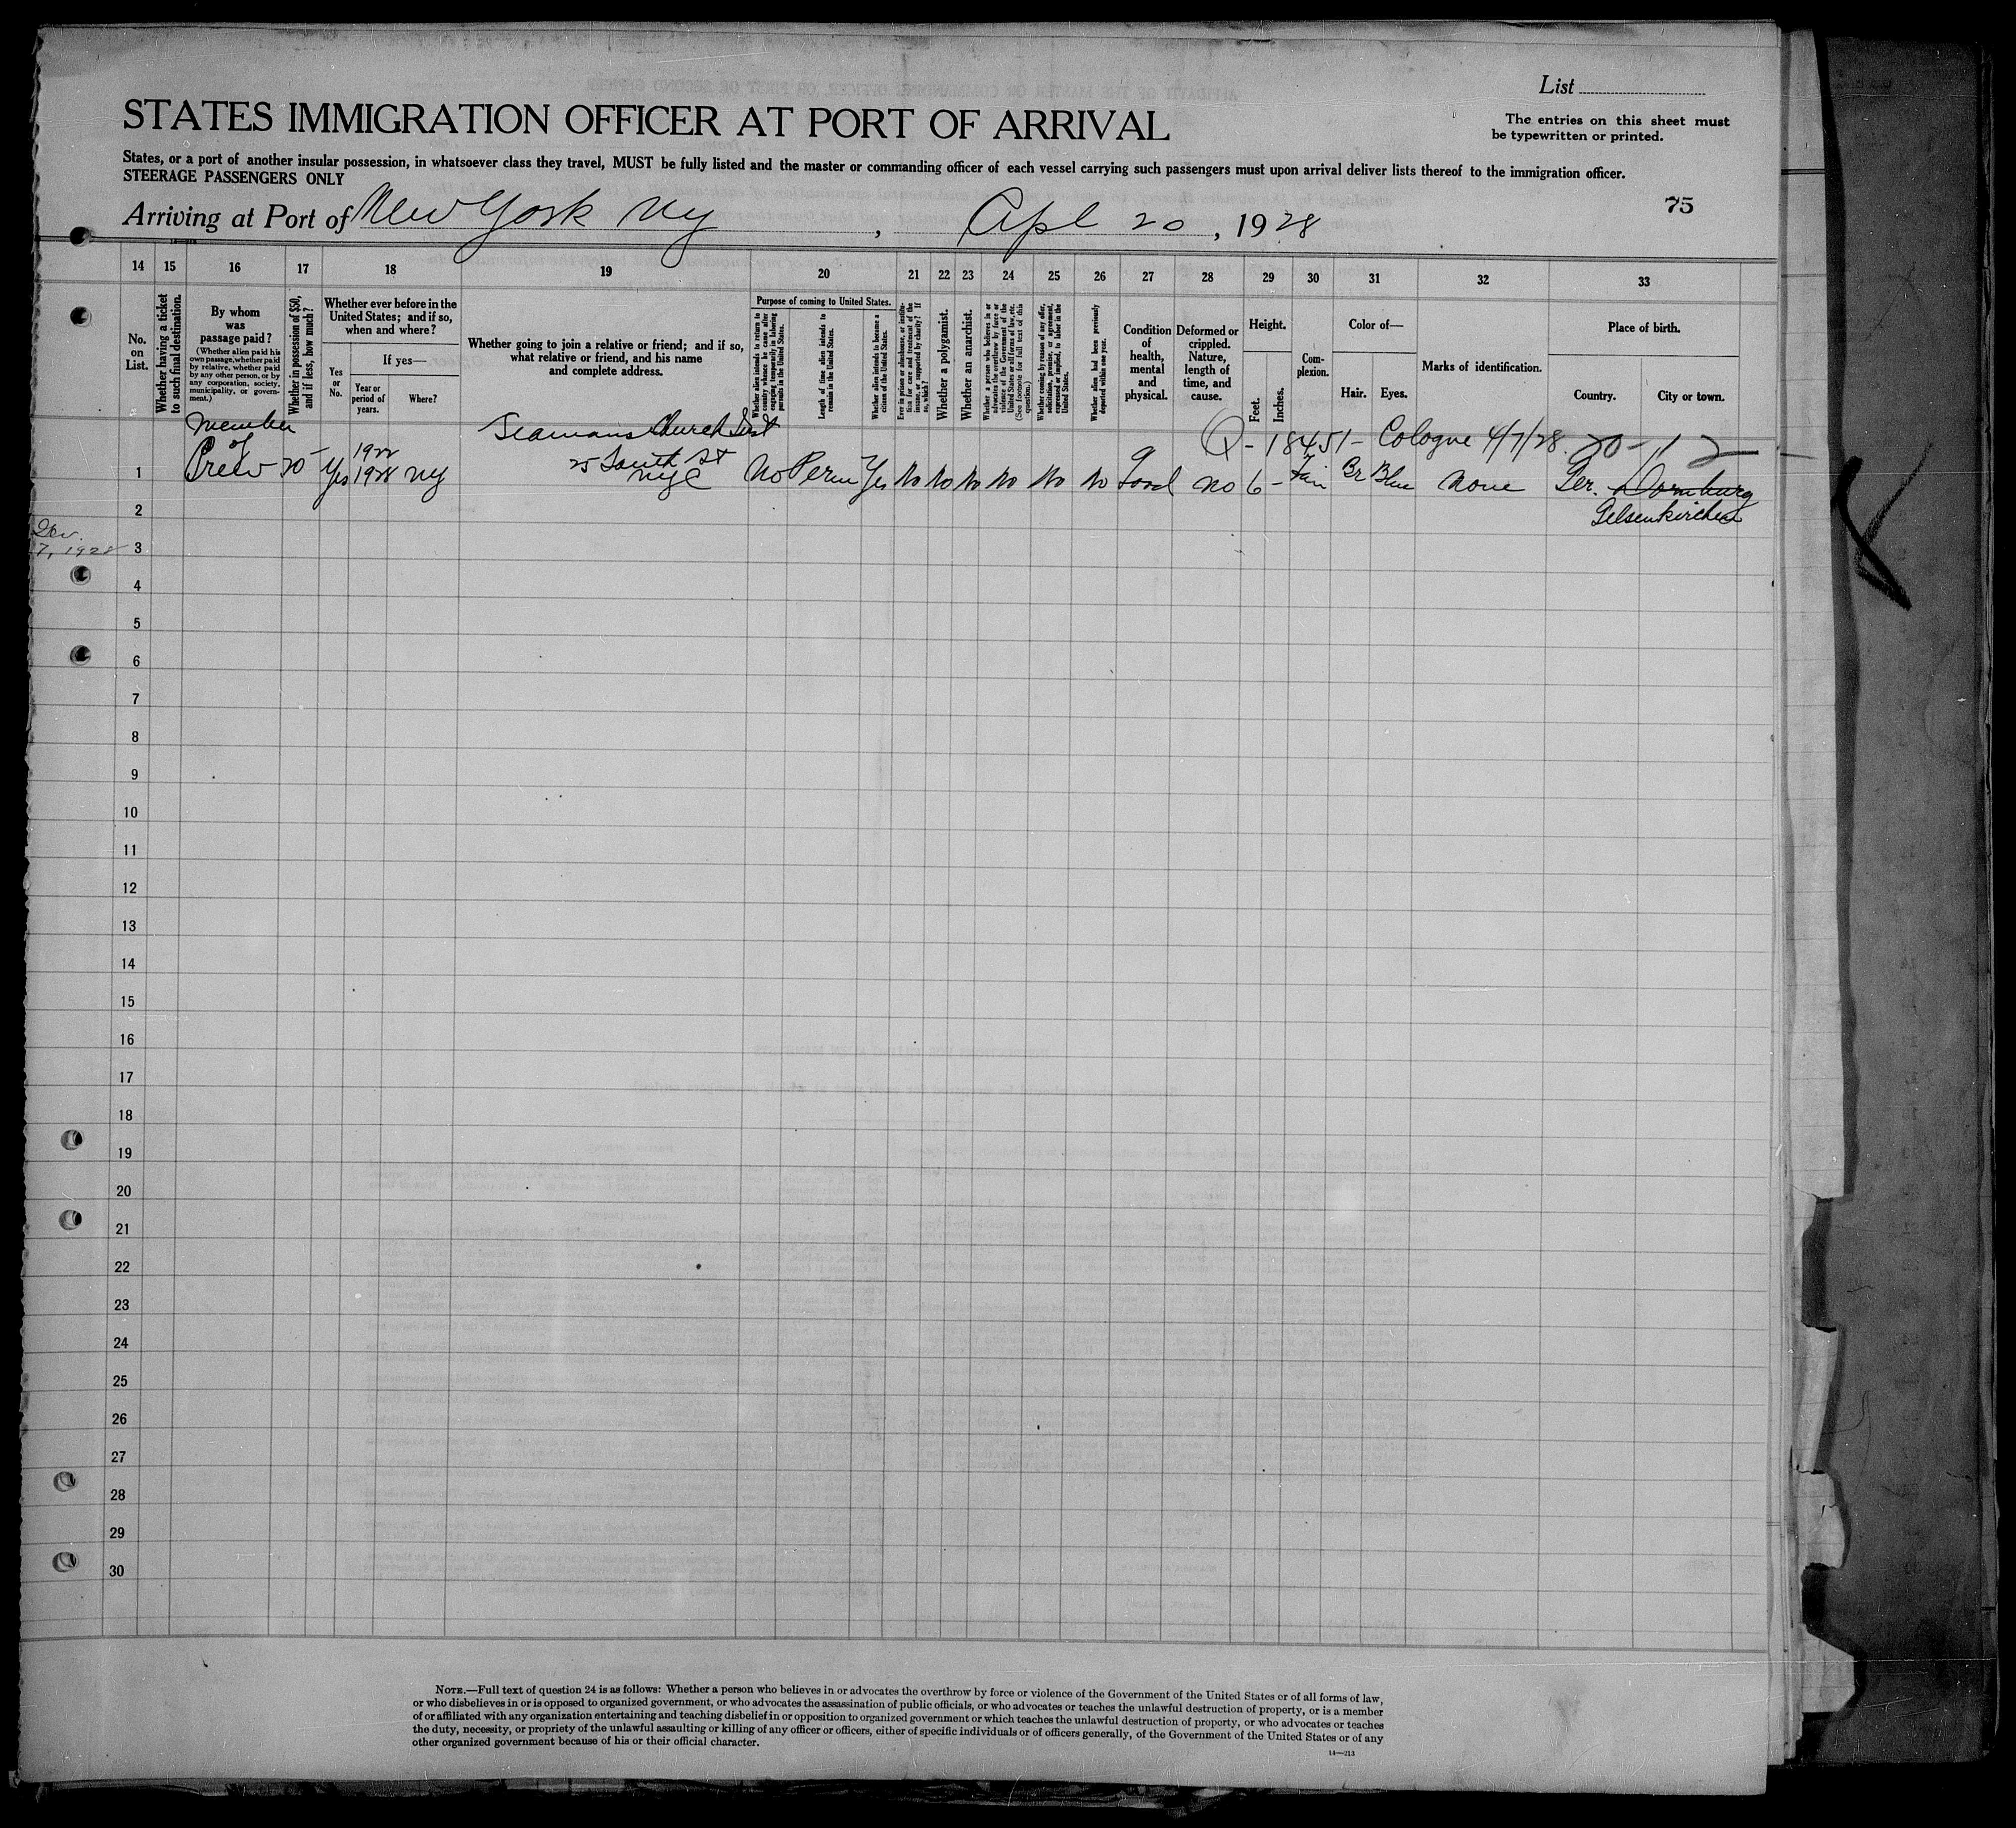 List
STATES IMMIGRATION OFFICER AT PORT OF ARRIVAL
The entries on this sheet must
be typewritten or printed.
States, or a port of another insular possession, in whatsoever class they travel, MUST be fully listed and the master or commanding officer of each vessel carrying such passengers must upon arrival deliver lists thereof to the immigration officer.
STEERAGE PASSENGERS ONLY
75
Arriving at Port of New York NY, Apl 20, 1928
14 15 16 17 18 19 20 21 22 23 24 25 26 27 28 29 30 31 32 33
No. on List.
Whether having a ticket to such final destination.
By whom was passage paid?
(Whether alien paid his own passage, whether paid by relative, whether paid by any other person, or by any corporation, society, municipality, or government.)
Whether in possession of $50, and if less, how much?
Whether ever before in the United States; and if so, when and where?
Yes or No.
If yes—
Year or period of years.
Where?
Whether going to join a relative or friend; and if so, what relative or friend, and his name and complete address.
Purpose of coming to United States.
Whether alien intends to return to country whence he came after engaging temporarily in laboring pursuits in the United States.
Length of time alien intends to remain in the United States.
Whether alien intends to become a citizen of the United States.
Ever in prison or almshouse, or institution for care and treatment of the insane, or supported by charity? If so, which?
Whether a polygamist.
Whether an anarchist.
Whether a person who believes in or advocates the overthrow by force or violence of the Government of the United States or all forms of law, etc. (See footnote for full text of this question.)
Whether coming by reason of any offer, solicitation, promise, or agreement, expressed or implied, to labor in the United States.
Whether alien had been previously deported within one year.
Condition of health, mental and physical.
Deformed or crippled. Nature, length of time, and cause.
Height.
Feet.
Inches.
Complexion.
Color of—
Hair.
Eyes.
Marks of identification.
Place of birth.
Country.
City or town.
Member Seamans Church Inst Q-18451- Cologne 4/7/28
of 1922 25 South St
1 Crew Yes 1928 NY NYC No Perm Yes No No No No No No Good No 6 - Fair Br Blue None Ger. Dornburg
2 Gelsenkirchen
7, 1928 3
4
5
6
7
8
9
10
11
12
13
14
15
16
17
18
19
20
21
22
23
24
25
26
27
28
29
30
NOTE.—Full text of question 24 is as follows: Whether a person who believes in or advocates the overthrow by force or violence of the Government of the United States or of all forms of law,
or who disbelieves in or is opposed to organized government, or who advocates the assassination of public officials, or who advocates or teaches the unlawful destruction of property, or is a member
of or affiliated with any organization entertaining and teaching disbelief in or opposition to organized government or which teaches the unlawful destruction of property, or who advocates or teaches
the duty, necessity, or propriety of the unlawful assaulting or killing of any officer or officers, either of specific individuals or of officers generally, of the Government of the United States or of any
other organized government because of his or their official character.
14—213